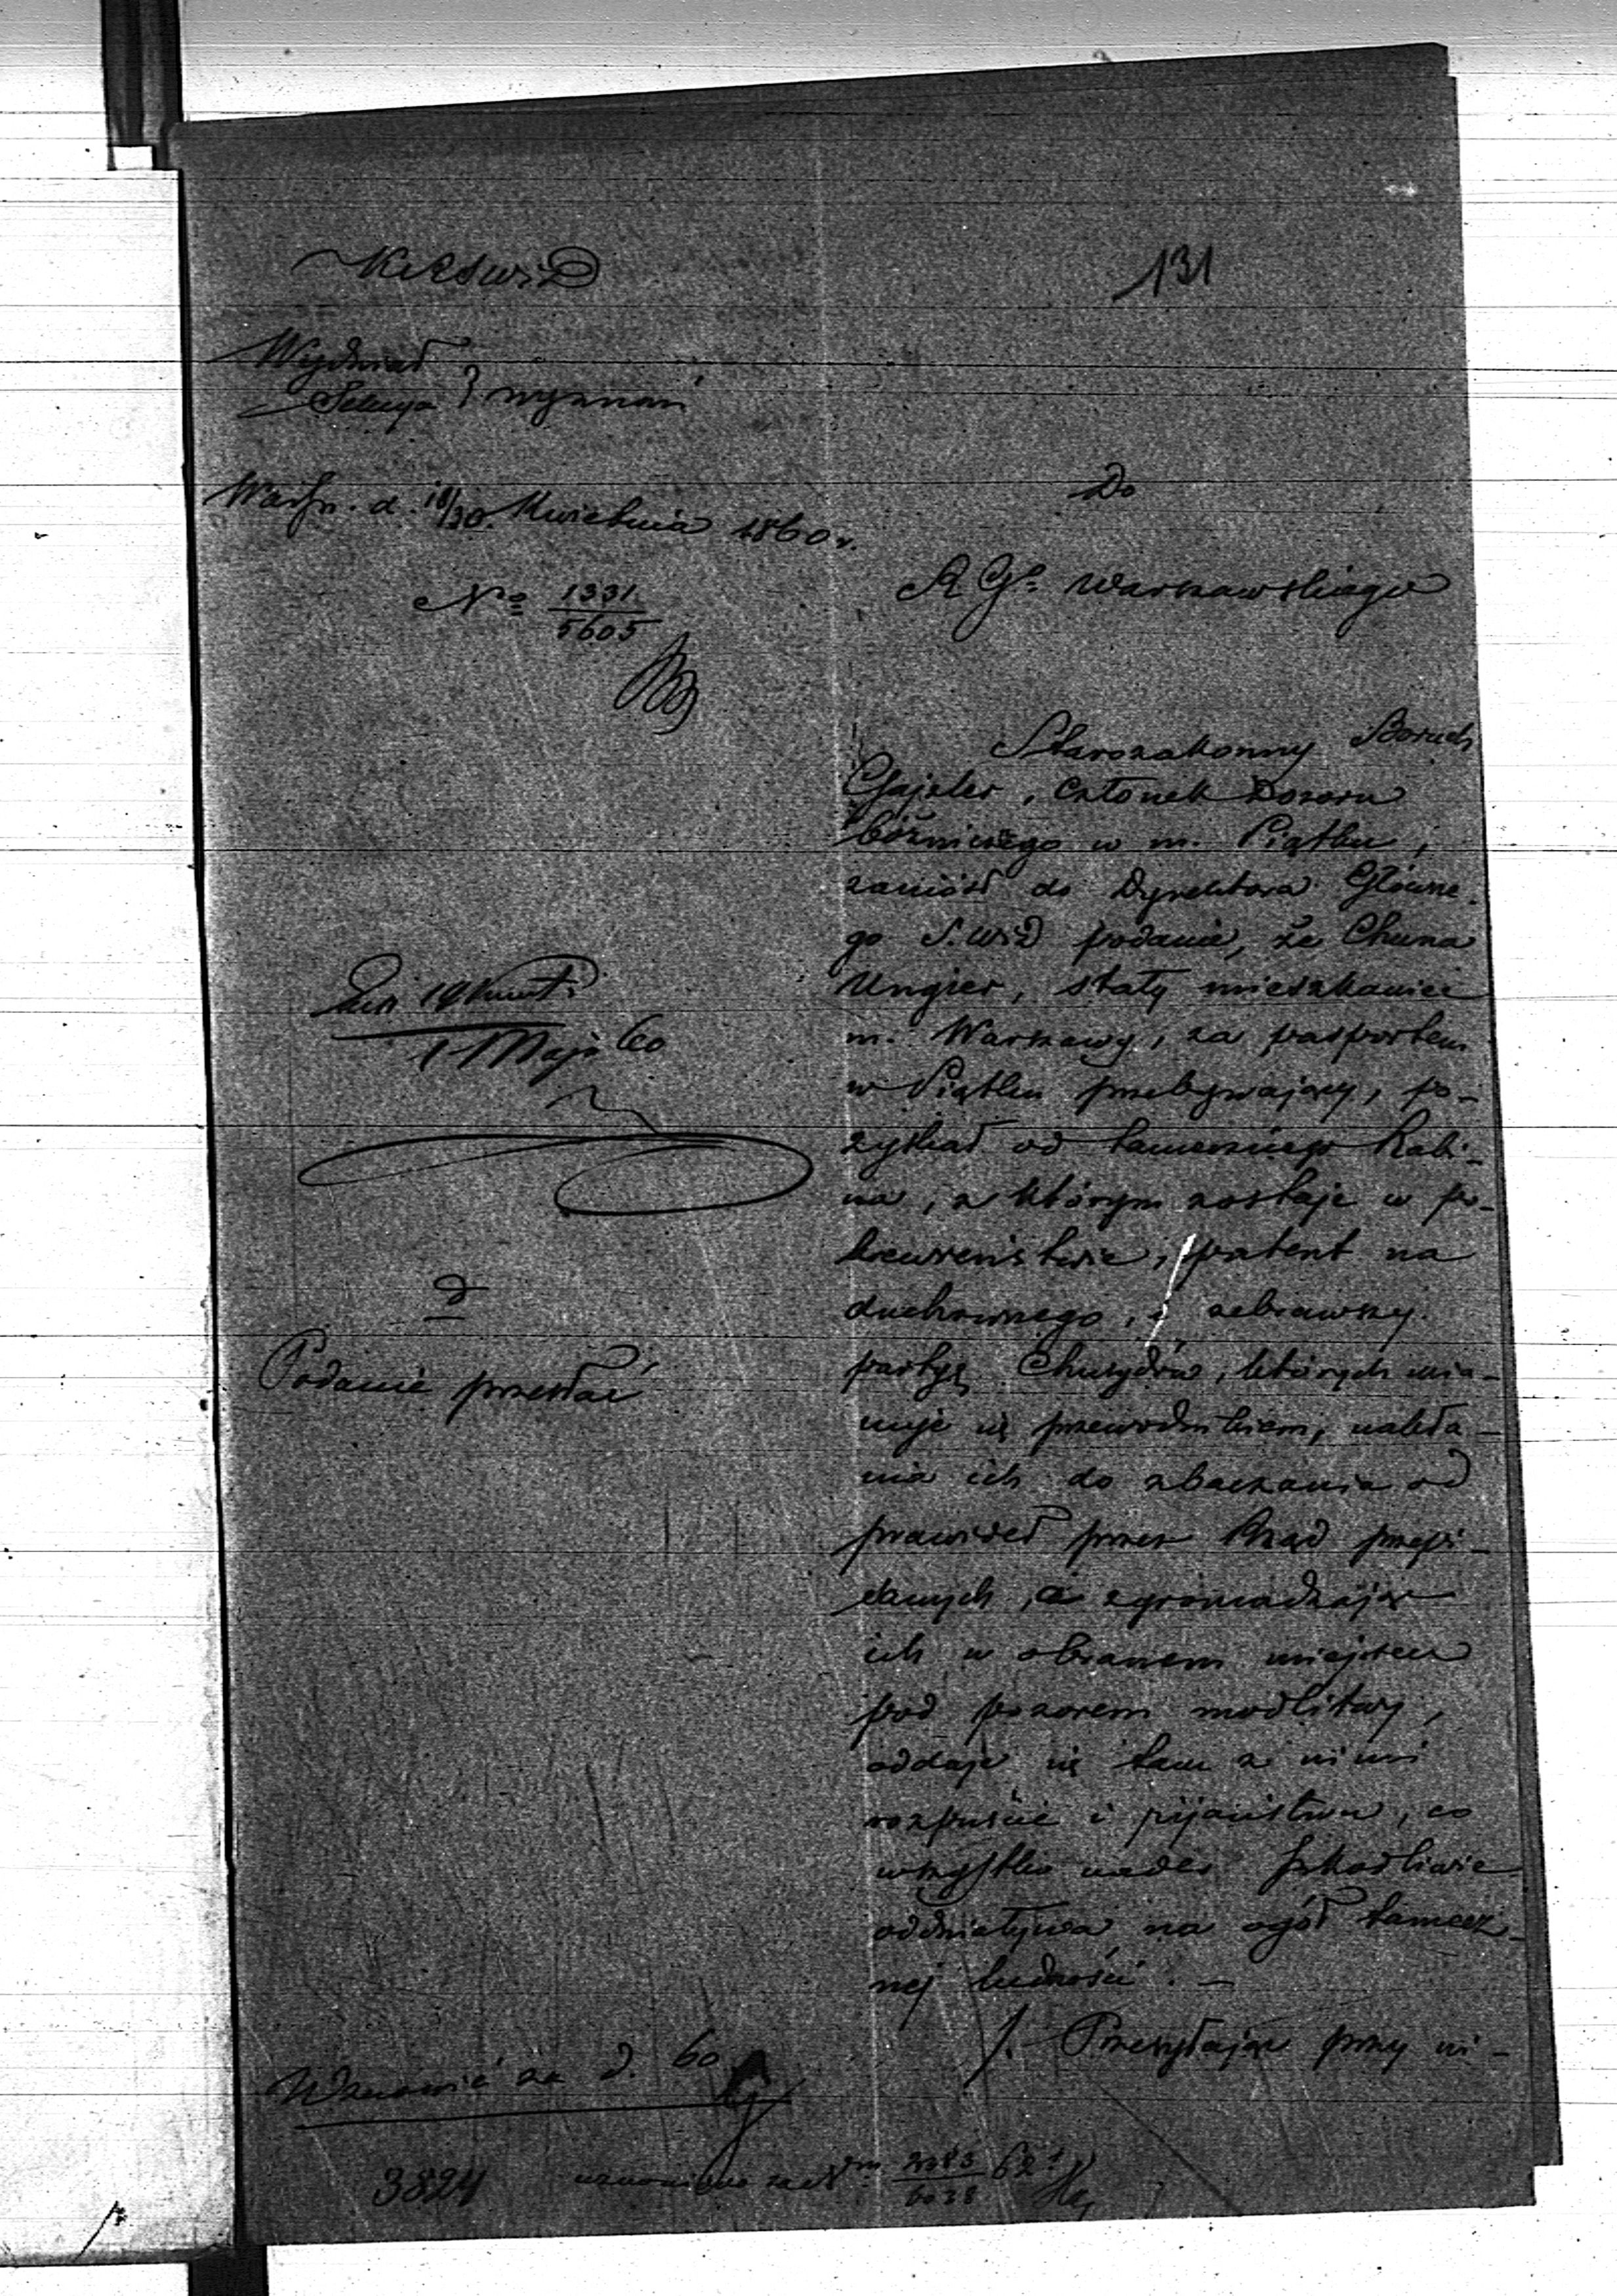 131
Wydział
Sekcya } wyznań
Warsz. d. 18/30 Kwietnia 1860 r.
№ 1331/5605
Do
R. G. Warszawskiego
1 Maja 60
d
Podanie przesłać
Starozakonny Boruch
Gajzler, członek Dozoru
bóżniczego w m. Piątku,
zaniósł do Dyrektora Główne-
go S. W i D podanie, że Chuna
Ungier, stały mieszkaniec
m. Warszawy, za pasportem
w Piątku przebywający, po-
zyskał od tamecznego Rabi-
na, z którym zostaje w po-
krewieństwie, patent na
duchownego, i zebrawszy
partyę Chusydów, których mia-
nuje się przewodnikiem, nakła-
nia ich do zbaczania od
prawideł przez Rząd przepi-
sanych, a zgromadzając
ich w obranem miejscu
pod pozorem modlitwy,
oddaje się tam z nimi
rozpuście i pijaństwu, co
wszystko nader szkodliwie
oddziaływa na ogół tamecz-
nej ludności. —
/. Przesyłając przy ni-
Wznowić za d. 60
3824